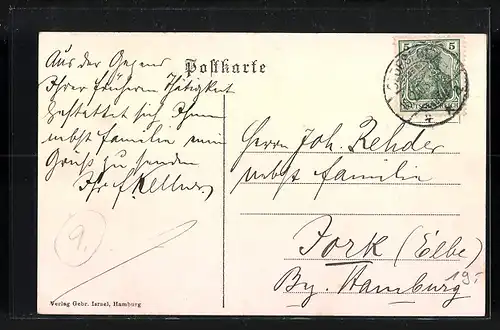 Postkarte
Aus der Gegend
Ihrer früheren Thätigkeit
gestattet sich Ihnen
nebst Familie einen
Gruß zu senden
Ihr Kellner
9.
Herrn Joh. Rehder
nebst Familie
Jork (Elbe)
By. Hamburg
19.-
5 5
Verlag Gebr. Israel, Hamburg